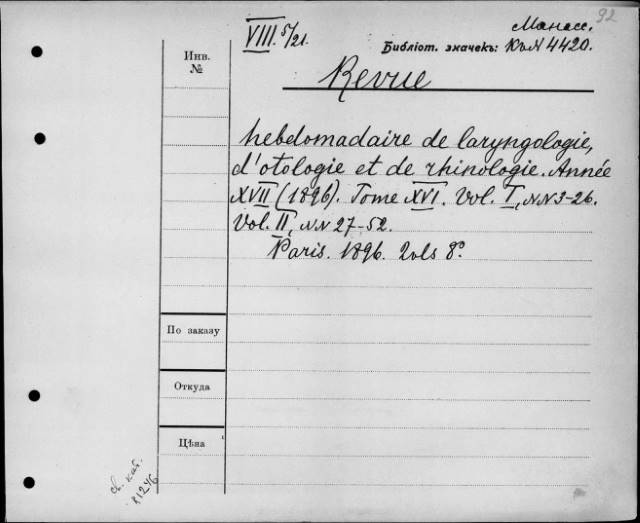 92
Манас.
VIII. 5/21.
Библіот. значекъ: КъN 4420.
Инв.
№
Revue
hebdomadaire de laryngologie,
d'otologie et de rhinologie. Année
XVII (1896). Tome XVI. Vol. I, NN 3-26.
Vol. II, NN 27-52.
Paris. 1896. 2 vols 8º.
По заказу
Откуда
Цѣна
каб.